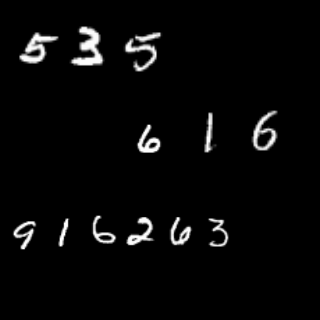 5 3 5
6 1 6
9 1 6 2 6 3